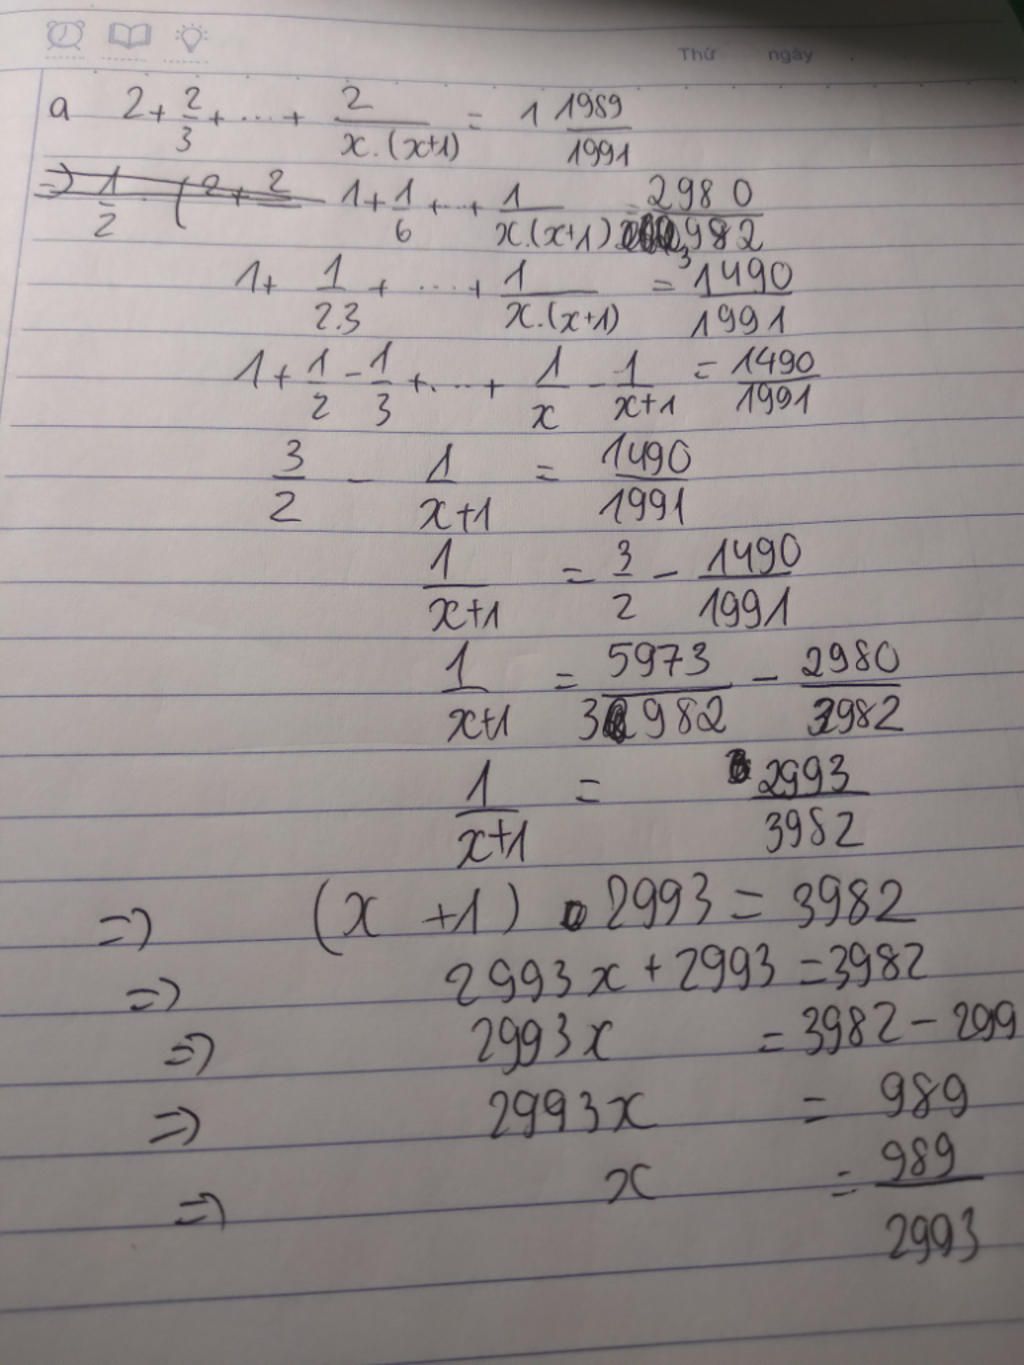 Thứ ngày
a 2 + 2/3 + ... + 2/x.(x+1) = 1 1989/1991
1 + 1/6 + ... + 1/x.(x+1) = 2980/3982
1 + 1/2.3 + ... + 1/x.(x+1) = 1490/1991
1 + 1/2 - 1/3 + ... + 1/x - 1/x+1 = 1490/1991
3/2 - 1/x+1 = 1490/1991
1/x+1 = 3/2 - 1490/1991
1/x+1 = 5973/3982 - 2980/3982
1/x+1 = 2993/3982
=> (x + 1) . 2993 = 3982
=> 2993x + 2993 = 3982
=> 2993x = 3982 - 299
=> 2993x = 989
=> x = 989/2993